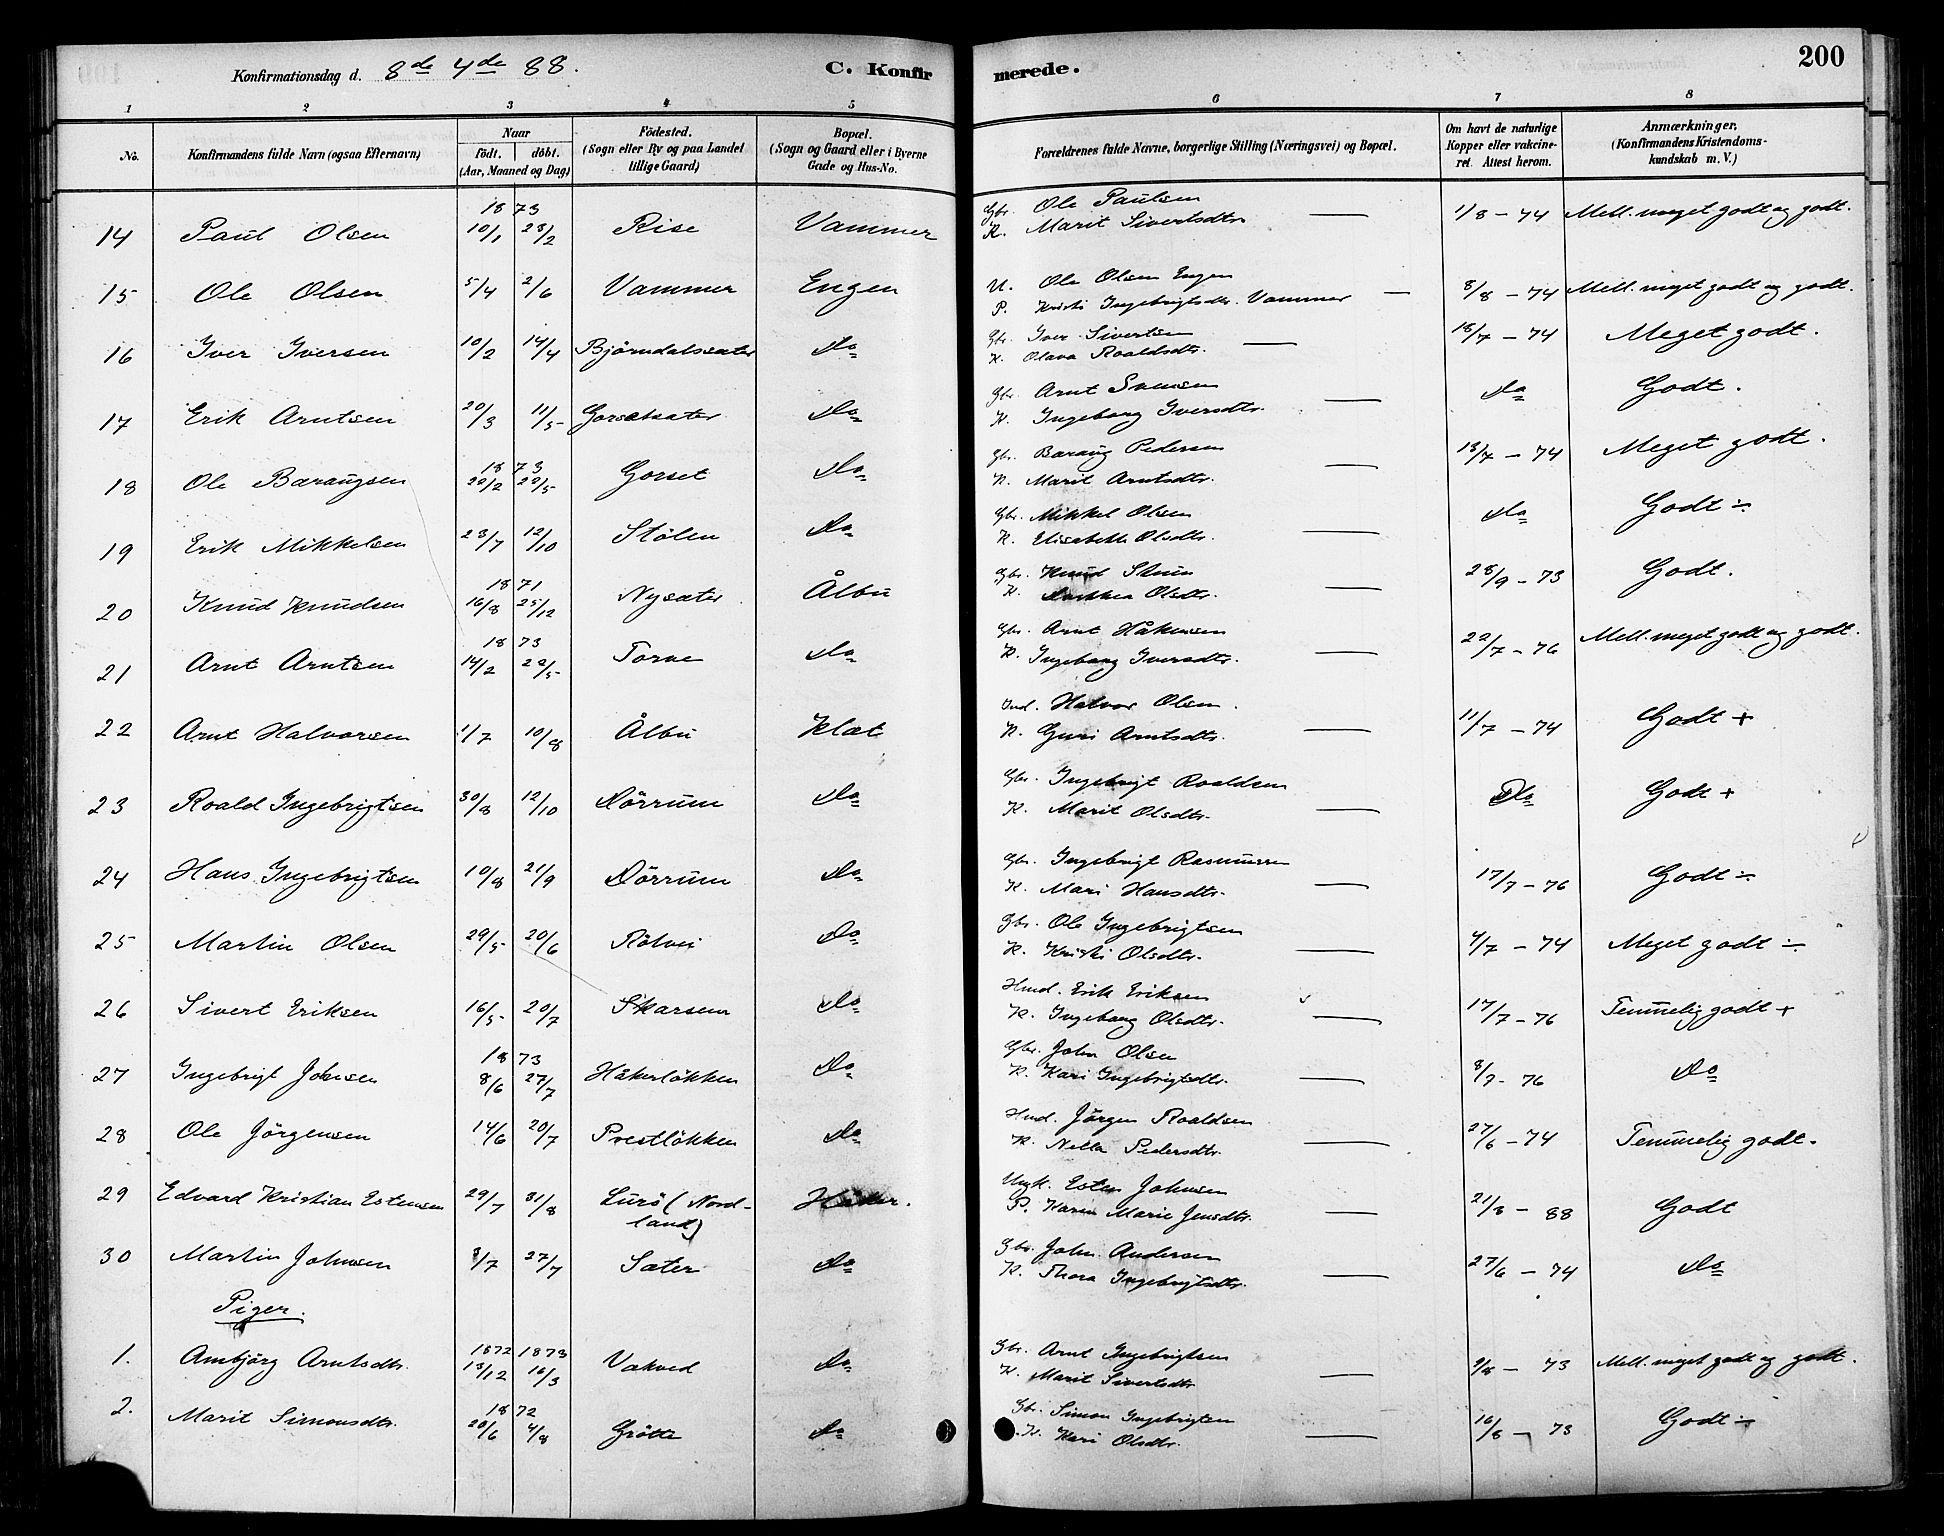 200
Konfirmationsdag d. 8de 4de 88.
C. Konfirmerede.
1 2 3 4 5 6 7 8
No.
Konfirmandens fulde Navn (ogsaa Efternavn)
Naar
födt. döbt.
(Aar, Maaned og Dag)
Födested.
(Sogn eller By og paa Landet
tillige Gaard)
Bopæl.
(Sogn og Gaard eller i Byerne
Gade og Hus-No.
Forældrenes fulde Navne, borgerlige Stilling (Næringsvei) og Bopæl.
Om havt de naturlige
Kopper eller vakcine-
ret. Attest herom.
Anmærkninger.
(Konfirmandens Kristendoms-
kundskab m. V.)
18 73
14 Paul Olsen 10/1 23/2 Rise Vammer Gbr. Ole Paulsen 1/8 - 74 Mell. meget godt og godt.
K. Marit Sivertsdtr.
15 Ole Olsen 5/4 2/6 Vammer Engen U. Ole Olsen Engen 8/8 - 74 Mell. meget godt og godt.
P. Kristi Ingebrigtsdtr. Vammer
16 Iver Iversen 10/2 14/4 Björndalssæter Do Gbr. Iver Sivertsen 18/7 - 74 Meget godt.
K. Olava Roaldsdtr.
17 Erik Arntsen 20/3 11/5 Gorsetsæter Do Gbr. Arnt Svensen Do Godt.
K. Ingeborg Iversdtr.
18 73
18 Ole Baraugsen 20/2 29/5 Gorset Do Gbr. Baraug Pedersen 18/7 - 74 Meget godt.
K. Marit Arntsdtr.
19 Erik Mikkelsen 23/7 12/10 Stölen Do Gbr. Mikkel Olsen Do Godt ÷
K. Elisabeth Olsdtr.
18 71
20 Knud Knudsen 16/8 25/12 Nysæter Ålbu Gbr. Knud Steen 28/9 - 73 Godt.
K. Olsdtr.
18 73
21 Arnt Arntsen 14/2 29/5 Torve Do Gbr. Arnt Håkensen 22/7 - 76 Mell. meget godt og godt.
K. Ingeborg Iversdtr.
22 Arnt Halvorsen 1/7 10/8 Ålbu Klæt Ind. Halvor Olsen. 11/7 - 74 Godt +
K. Guri Arntsdtr.
23 Roald Ingebrigtsen 30/8 12/10 Dörrum Do Gbr. Ingebrigt Roaldsen Do Godt +
K. Marit Olsdtr.
24 Hans Ingebrigtsen 10/8 21/9 Dörrum Do Gbr. Ingebrigt Rasmussen 17/7 - 76 Godt ÷
K. Mari Hansdtr.
25 Martin Olsen 29/5 20/6 Rölvei Do Gbr. Ole Ingebrigtsen 4/7 - 74 Meget godt ÷
K. Kristi Olsdtr.
26 Sivert Eriksen 16/5 20/7 Skarsem Do Hmd. Erik Eriksen 17/7 - 76 Temmelig godt +
K. Ingeborg Olsdtr.
18 73
27 Ingebrigt Johnsen 8/6 27/7 Håkerlökken Do Gbr. John Olsen 8/7 - 76 Do
K. Kari Ingebrigtsdtr.
28 Ole Jörgensen 14/6 20/7 Prestlökken Do Hmd. Jörgen Roaldsen 27/6 - 74 Temmelig godt.
K. Nella Pedersdtr.
29 Edvard Kristian Estensen 29/7 31/8 Lurö (Nord- Håker. Ungk. Esten Johnsen 21/3 - 88 Godt
land) P. Karen Marie Jensdtr.
30 Martin Johnsen 3/7 27/7 Sæter Do Gbr. John Andersen 27/6 - 74 Do
K. Thora Ingebrigtsdtr.
Piger.
1872 1873
1. Ambjörg Arntsdtr. 13/12 16/3 Vakved Do Gbr. Arnt Ingebrigtsen 9/8 - 73 Mell. meget godt og godt.
K. Marit Sivertsdtr
18 72
2. Marit Simonsdtr. 20/6 4/8 Grötte Do Gbr. Simon Ingebrigtsen 16/8 - 73 Godt ÷
K. Kari Olsdtr.